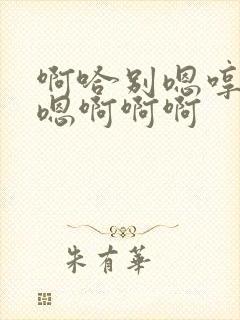 啊哈别嗯哼
嗯啊啊啊
朱有華